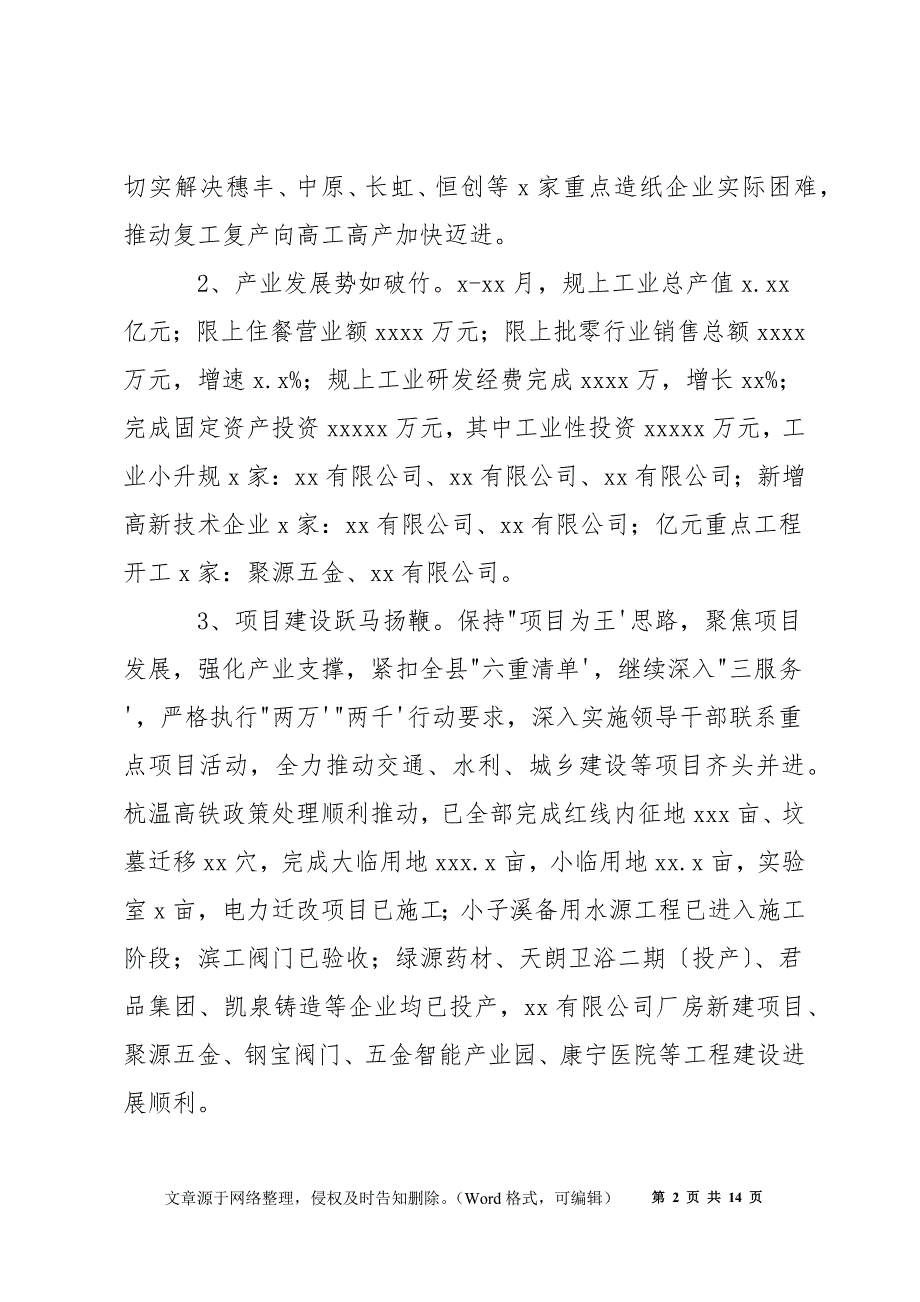 切实解决穗丰、中原、长虹、恒创等 x 家重点造纸企业实际困难，
推动复工复产向高工高产加快迈进。
2、产业发展势如破竹。x-xx 月，规上工业总产值 x.xx
亿元；限上住餐营业额 xxxx 万元；限上批零行业销售总额 xxxx
万元，增速 x.x%；规上工业研发经费完成 xxxx 万，增长 xx%；
完成固定资产投资 xxxxx 万元，其中工业性投资 xxxxx 万元，工
业小升规 x 家：xx 有限公司、xx 有限公司、xx 有限公司；新增
高新技术企业 x 家：xx 有限公司、xx 有限公司；亿元重点工程
开工 x 家：聚源五金、xx 有限公司。
3、项目建设跃马扬鞭。保持"项目为王'思路，聚焦项目
发展，强化产业支撑，紧扣全县"六重清单'，继续深入"三服务
'，严格执行"两万'"两千'行动要求，深入实施领导干部联系重
点项目活动，全力推动交通、水利、城乡建设等项目齐头并进。
杭温高铁政策处理顺利推动，已全部完成红线内征地 xxx 亩、坟
墓迁移 xx 穴，完成大临用地 xxx.x 亩，小临用地 xx.x 亩，实验
室 x 亩，电力迁改项目已施工；小子溪备用水源工程已进入施工
阶段；滨工阀门已验收；绿源药材、天朗卫浴二期〔投产〕、君
品集团、凯泉铸造等企业均已投产，xx 有限公司厂房新建项目、
聚源五金、钢宝阀门、五金智能产业园、康宁医院等工程建设进
展顺利。
文章源于网络整理，侵权及时告知删除。（Word 格式，可编辑） 第 2 页 共 14 页